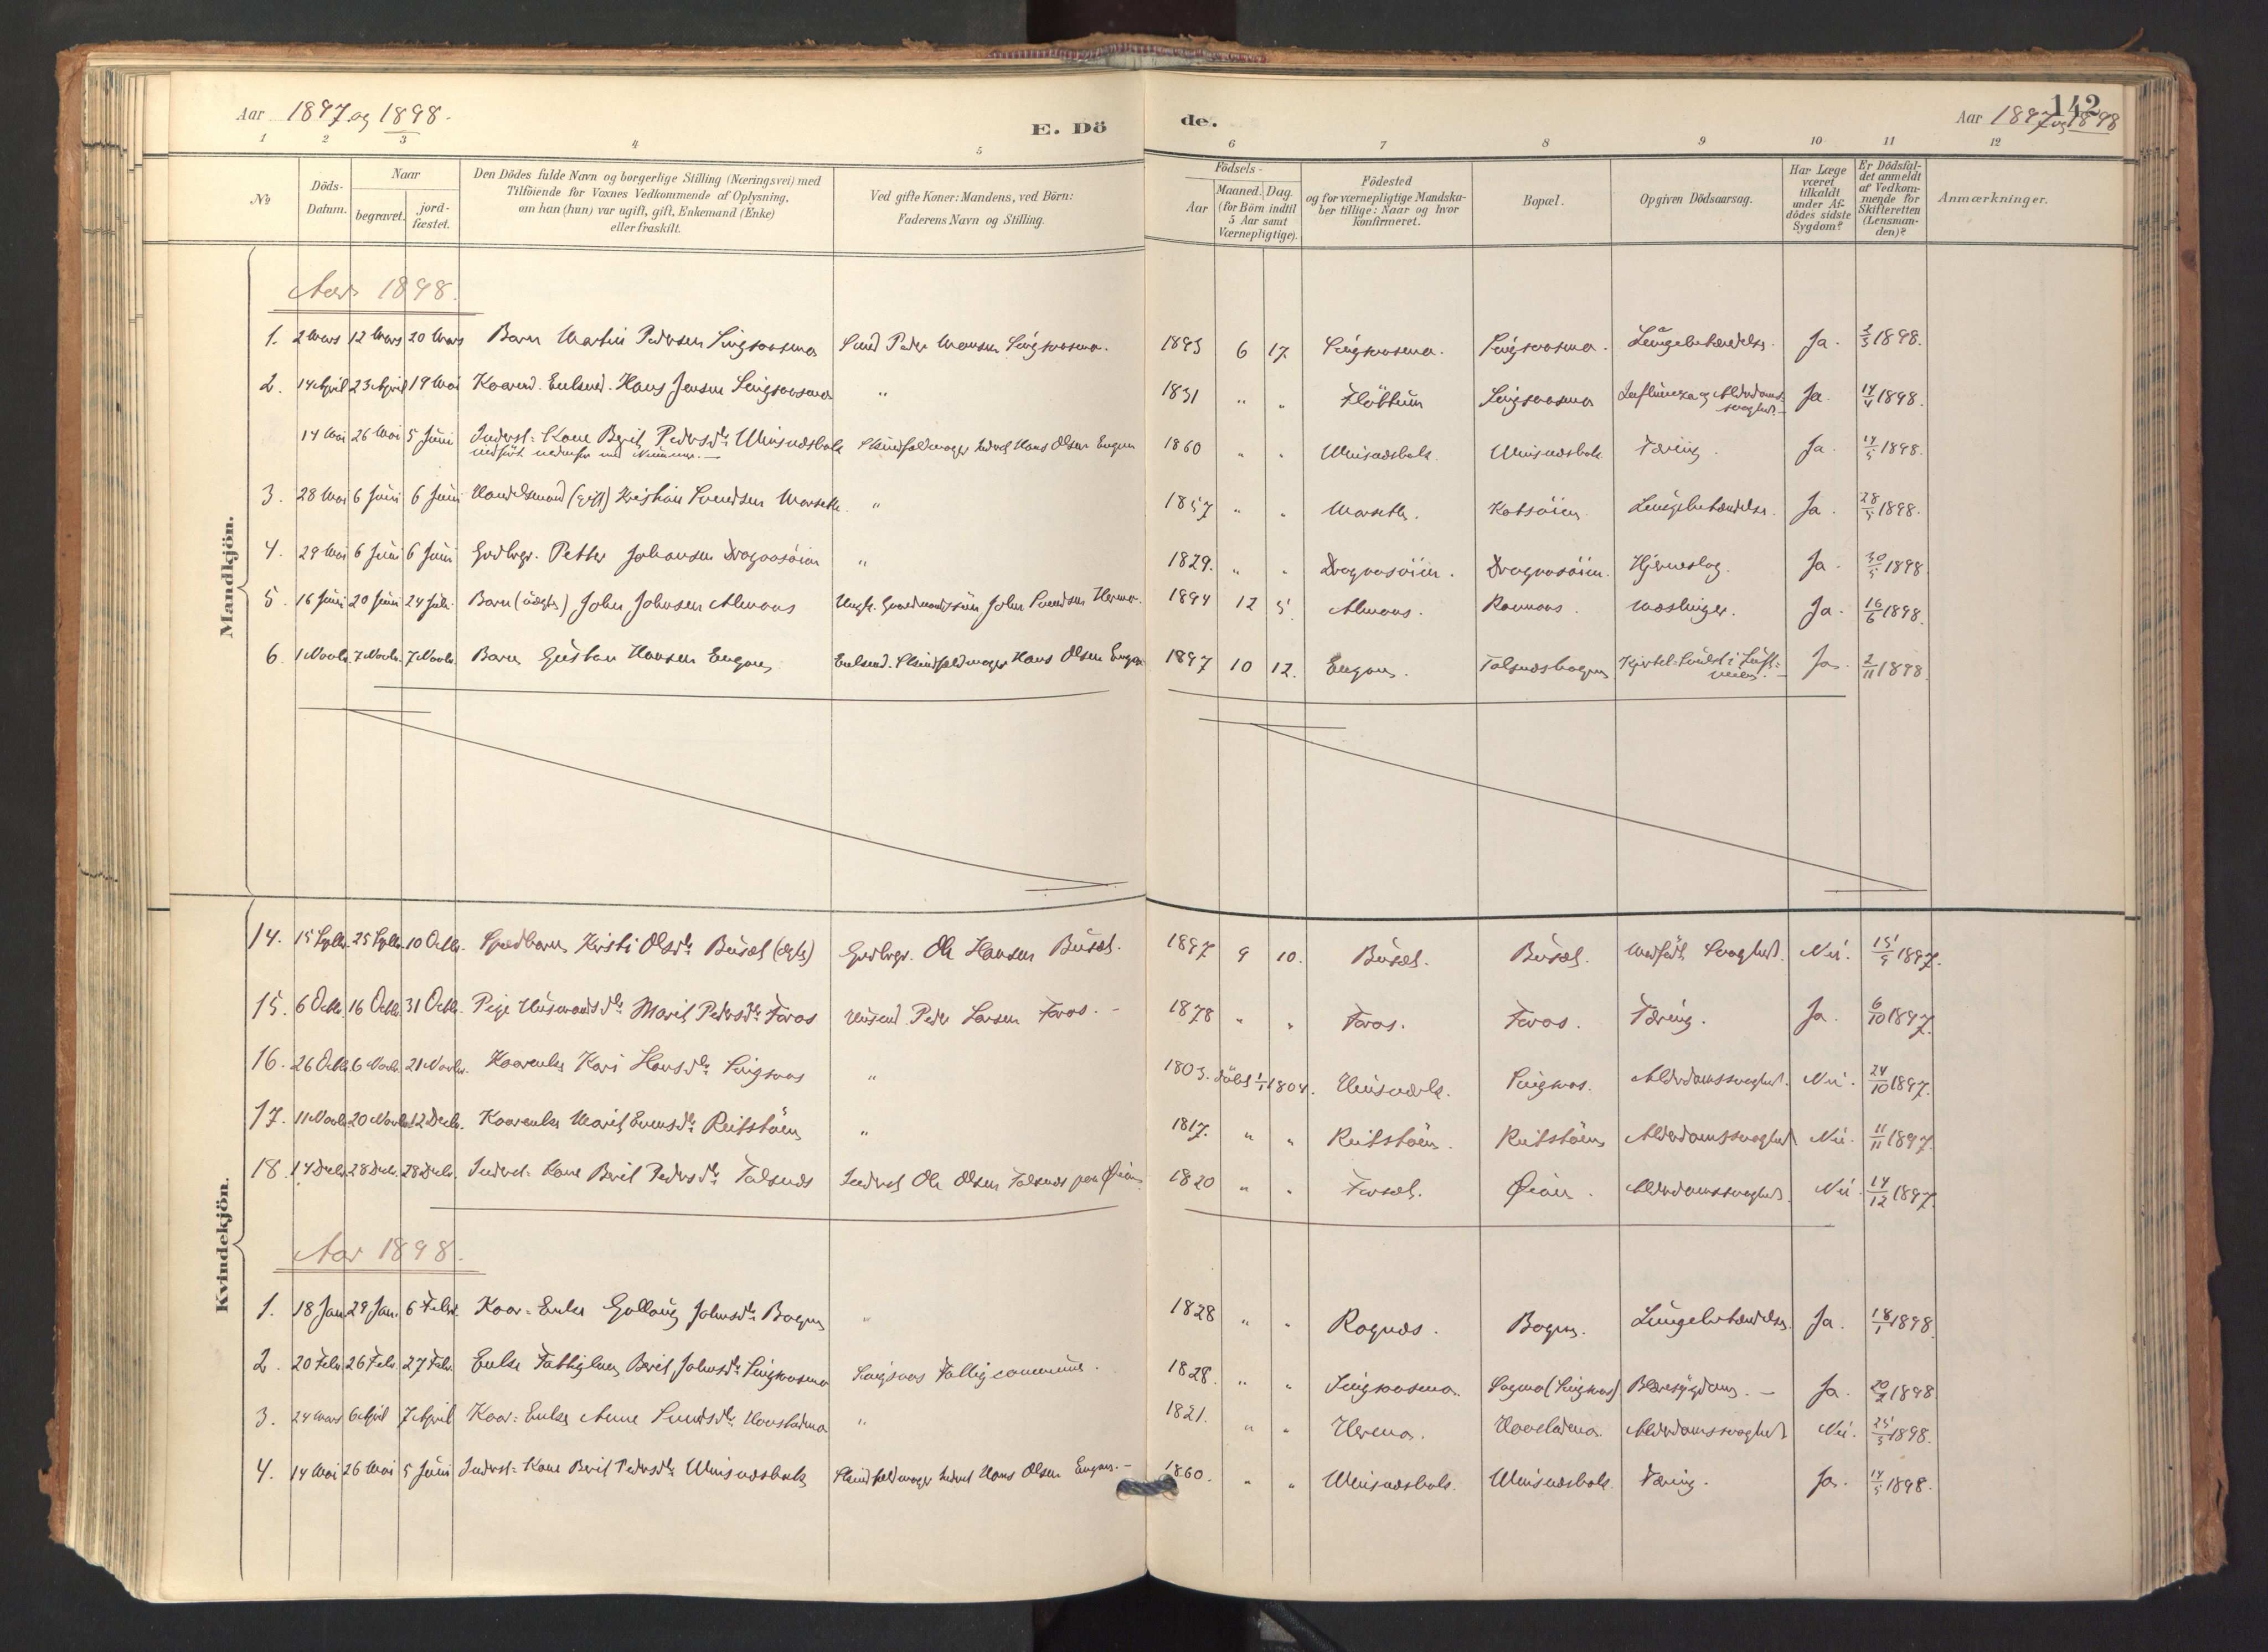 Aar 1897 og 1898.
E. Dö
de.
Aar 1897 og 1898
142
1 2 3 4 5 6 7 8 9 10 11 12
No
Döds-Datum.
Naar
begravet.
jord-fæstet.
Den Dödes fulde Navn og borgerlige Stilling (Næringsvei) med
Tilföiende for Voxnes Vedkommende af Oplysning,
om han (hun) var ugift, gift, Enkemand (Enke)
eller fraskilt.
Ved gifte Koner: Mandens, ved Börn:
Faderens Navn og Stilling.
Födsels-
Aar
Maaned. Dag.
(for Börn indtil
5 Aar samt
Værnepligtige).
Födested
og for værnepligtige Mandska-
ber tillige: Naar og hvor
konfirmeret.
Bopæl.
Opgiven Dödsaarsag.
Har Læge
været
tilkaldt
under Af-
dödes sidste
Sygdom?
Er Dödsfal-
det anmeldt
af Vedkom-
mende for
Skifteretten
(Lensman-
den)?
Anmærkninger.
Mandkjön.
Aar 1898.
1. 2 Mars 12 Mars 20 Mars Barn Martin Pedersen Singsaasmo Peder Singsaasmo. 1893 6 17 Singsaasmo. Singsaasmo. Lungebetændelse. Ja. 2/3 1898.
2. 14 April 23 April 19 Mai Kaarmd. Enkemd. Hans Jensen Singsaasmo " 1831 " " Flöttum Singsaasmo Influenza og Alderdoms-
svaghed. Ja. 14/4 1898.
14 Mai 26 Mai 5 Juni Inderst: Kone Berit Pedersdtr. Skindfeldmager Inderst Hans Olsen Engen 1860 " " Tæring. Ja. 14/5 1898.
3. 28 Mai 6 Juni 6 Juni Handelsmand (gift) Kristian Svendsen " 1857 " " Kotsöien Lungebetændelse. Ja. 28/5 1898.
4. 29 Mai 6 Juni 6 Juni Grdbrgr. Petter Johansen Dragaasöien " 1829. " " Dragaasöien. Dragaasöien. Hjerneslag. Ja. 30/5 1898
5. 16 Juni 20 Juni 24 Juli. Barn (uægte) John Johnsen Almaas Ungk. John Svendsen 1894 12 5. Almaas. Ramaas. Mæslinger. Ja. 16/6 1898.
6. 1 Novbr. 7 Novbr. 7 Novbr. Barn Gustav Hansen Engen Enkemd. Skindfeldmager Hans Olsen Engen 1897 10 12. Engen. Talsnæshagen Kjertel-Svulst i Luft-
veien. Ja. 2/11 1898.
Kvindekjön.
14. 15 Septbr. 25 Septbr. 10 Octbr. Spædbarn Kristi Olsdtr. Busæt (ægte) Grdbrgr. Ole Hansen Busæt. 1897 9 10. Busæt. Busæt. Medfödt Svaghed. Nei. 15/9 1897.
15. 6 Octbr. 16 Octbr. 31 Octbr. Pige Husmandsdtr. Marit Pedersdtr. Foros Husmd. Peder Larsen Foros. 1878 " " Foros. Foros. Tæring. Ja. 6/10 1897.
16. 26 Octbr. 6 Novbr. 21 Novbr. Kaarenke Kari Hansdtr. Singsaas " 1803. döbt 1/1 1804. Singsaas. Alderdomssvaghed. Nei. 24/10 1897.
17. 11 Novbr. 20 Novbr. 12 Decbr. Kaarenke Marit Evensdtr. Reitstöen " 1817. " " Reitstöen. Reitstöen Alderdomssvaghed Nei. 11/11 1897.
18. 14 Decbr. 28 Decbr. 28 Decbr. Inderst: Kone Berit Pedersdtr. Talsnæs Inderst Ole Olsen Talsnæs paa Öien 1820 " " Forsæt. Öien. Alderdomssvaghed. Nei. 14/12 1897.
Aar 1898.
1. 18 Jan. 29 Jan. 6 Febr. Kaar-Enke Gollaug Johnsdtr. Bogen " 1828 " " Rognæs. Bogen. Lungebetændelse. Ja. 18/1 1898.
2. 20 Febr. 26 Febr. 27 Febr. Enke Fattiglem Berit Johnsdtr. Singsaasmo Singsaas Fattigcommune. 1828. " " Singsaasmo. Sagmo (Singsaas). Blæresygdom. Ja. 20/2 1898.
3. 24 Mars 6 April 7 April Kaar-Enke Anne " 1821. " " Alderdomssvaghed Nei. 25/3 1898.
4. 14 Mai 26 Mai 5 Juni Inderst: Kone Berit Pedersdtr. Skindfeldmager Inderst Hans Olsen Engen. 1860. " " Tæring. Ja. 14/5 1898.